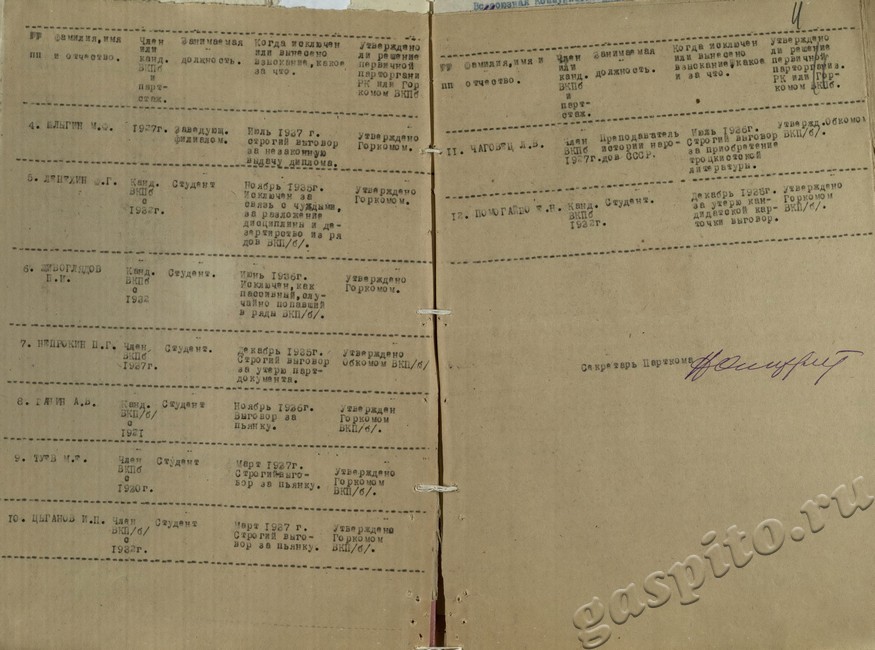 №№ Фамилия,имя Член Занимаемая Когда исключен Утверждено
или или вынесено ли решение
пп и отчество. канд. должность. взыскание,какое первичной
ВКПб за что. парторгани
и РК или Гор
парт- комом ВКПб
стаж.
4. М.Ф. 1927г. Заведующ. Июль 1937 г. Утверждено
филиалом. строгий выговор Горкомом.
за незаконную
выдачу диплома.
5. Г. Канд. Студент Ноябрь 1936г. Утверждено
ВКПб Исключен за Горкомом
с связь с чуждыми, ВКП/б/.
1932г. за разложение
дисциплины и де-
зертирство из ря
дов ВКП/б/.
6. ЖИВОГЛЯДОВ Канд. Студент. Июнь 1936г. Утверждено
ВКПб Исключен,как Горкомом.
с пассивный,слу-
1932 чайно попавший
в ряды ВКП/б/.
7. НЕПРОКИН П.Г. Член Студент. Декабрь 1935г. Утверждено
ВКПб Строгий выговор Обкомом ВКП/б/
1927г. за утерю парт-
документа.
8. А.В. Канд. Студент Ноябрь 1936г. Утвержден
ВКП/б/ Выговор за Горкомом
с пьянку. ВКП/б/.
1931
9. ТУЕВ М. Член Студент Март 1937г.
ВКПб Строгий выго- Утверждено
с вор за пьянку. Горкомом
1930г. ВКП/б/.
10. ЦЫГАНОВ И.П. Член Студент Март 1937 г. Утверждено
ВКП/б/ Строгий выго- Горкомом
с вор за пьянку. ВКП/б/.
1932г.
4
№№ Фамилия,имя и Член Занимаемая Когда исключен Утверждено
или или вынесено ли решение
пп отчество. канд. должность. взыскание,какое первичной
ВКПб и за что. парторганиз.
и РК или Гор-
парт- комом ВКПб.
стаж.
11. ЧАГОВЕЦ А.В. Член Преподаватель Июль 1936г. Утвержд.Обкомом
ВКПб истории наро- Строгий выговор ВКП/б/.
1927г. дов СССР. за приобретение
троцкистской
литературы.
12. ПОМОГАЙБО Канд. Студент. Декабрь 1935г. Утверждено
ВКПб за утерю кан- Горкомом
1932г. дидатской кар- ВКП/б/.
точки выговор.
Секретарь Парткома
gaspito.ru